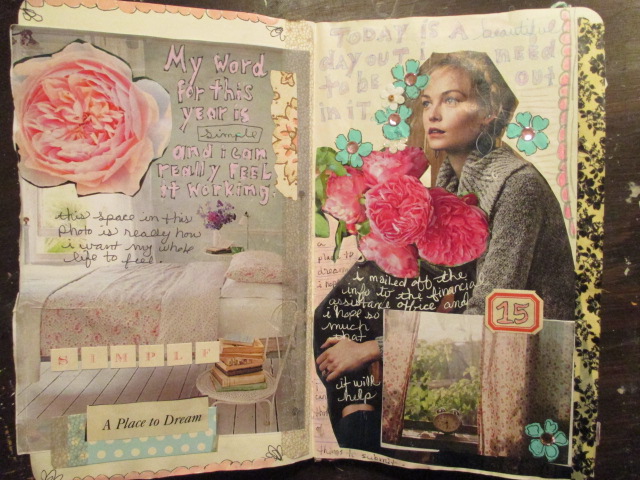 My word
for this
year is
simple
and i can
really feel
it working.
this space in this
photo is really how
i want my whole
life to feel.
SIMPLE
A Place to Dream
TODAY IS A beautiful
day out i need
to be out
in it.
i mailed off the
info to the financial
assistance office and
i hope so
much
that
it will
help
15